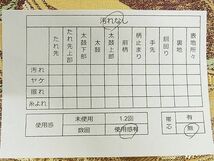 汚れなし
たれ先
たれ先上部
太鼓下部
太鼓
太鼓上部
前柄
柄止まり
手先
胴回り
裏地
表地所々
汚れ
ヤケ
眼れ
糸よれ
使用感
未使用
1.2回
数回
使用感有
帯芯
有
無